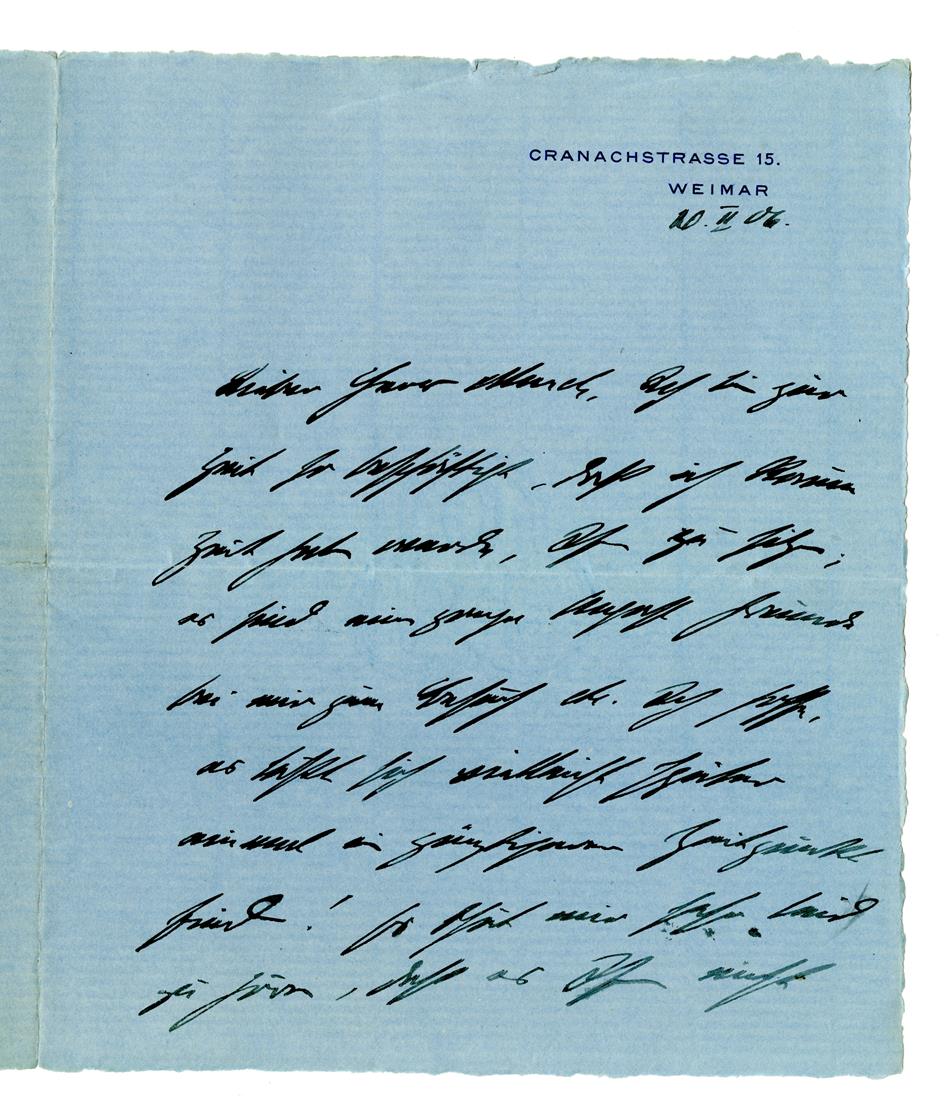 CRANACHSTRASSE 15.
WEIMAR
20. II 06.
Lieber Herr Munch, Ich bin zur
Zeit so beschäftigt, dass ich kaum
Zeit haben werde, Ihnen zu sitzen;
es sind eine ganze Freunde
bei mir zum Besuch da. Ich hoffe,
es lässt sich vielleicht später
einmal ein günstigerer Zeitpunkt
finden! Es thut mir sehr leid
zu hören, dass es Ihnen nicht